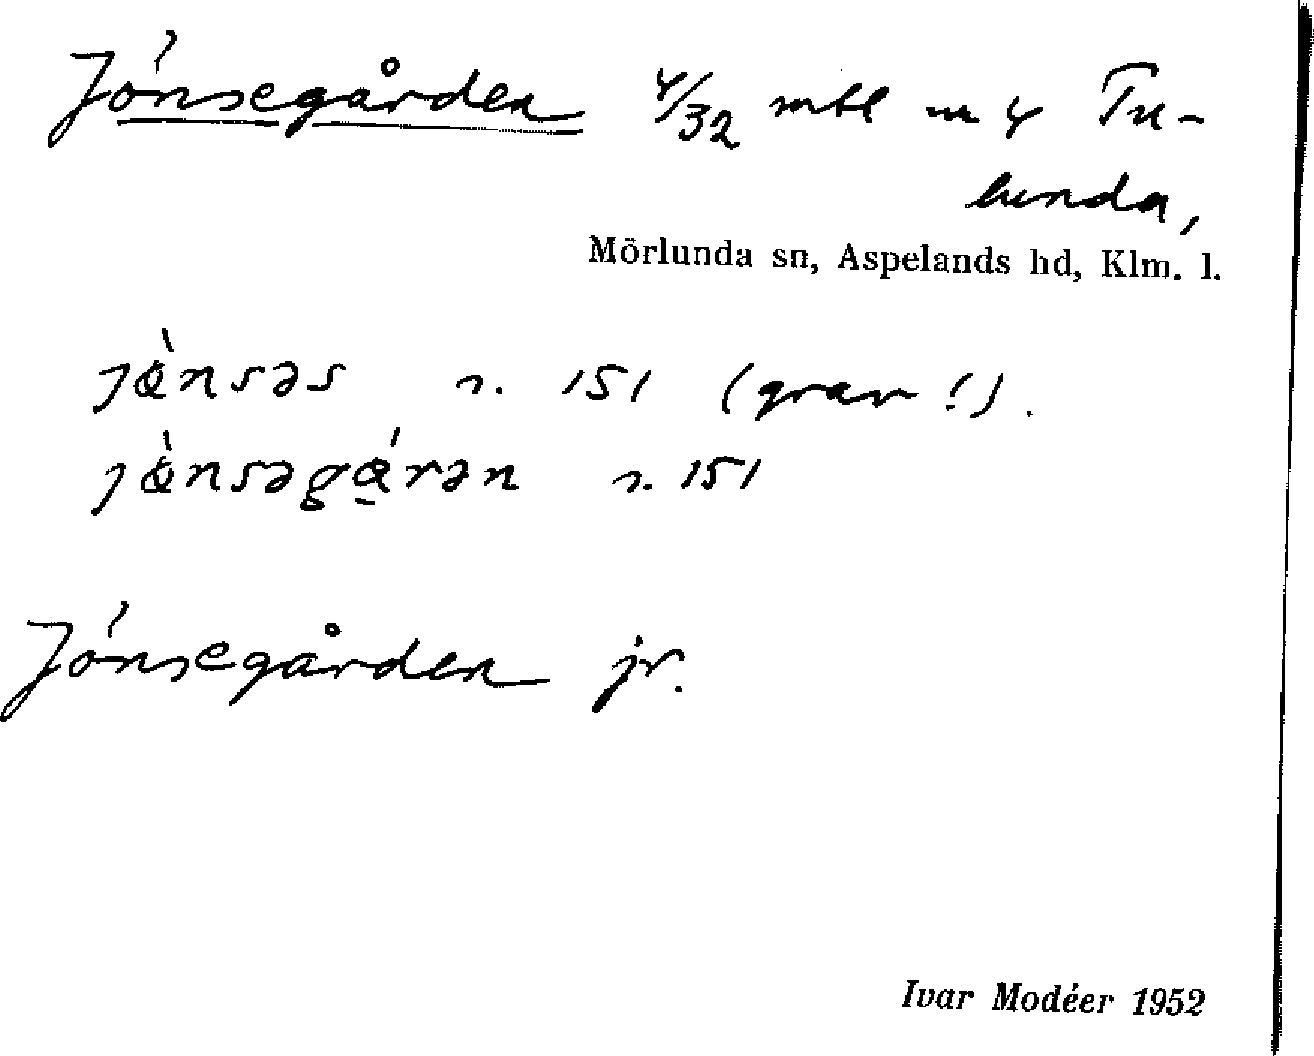 Jónsegården 4/32 mtl n 4 Tu-
lunda,
Mörlunda sn, Aspelands hd, Klm. l.
jànsəs s. 151 (grav!).
jànsəgárən s. 151
Jónsegården jr.
Ivar Modéer 1952